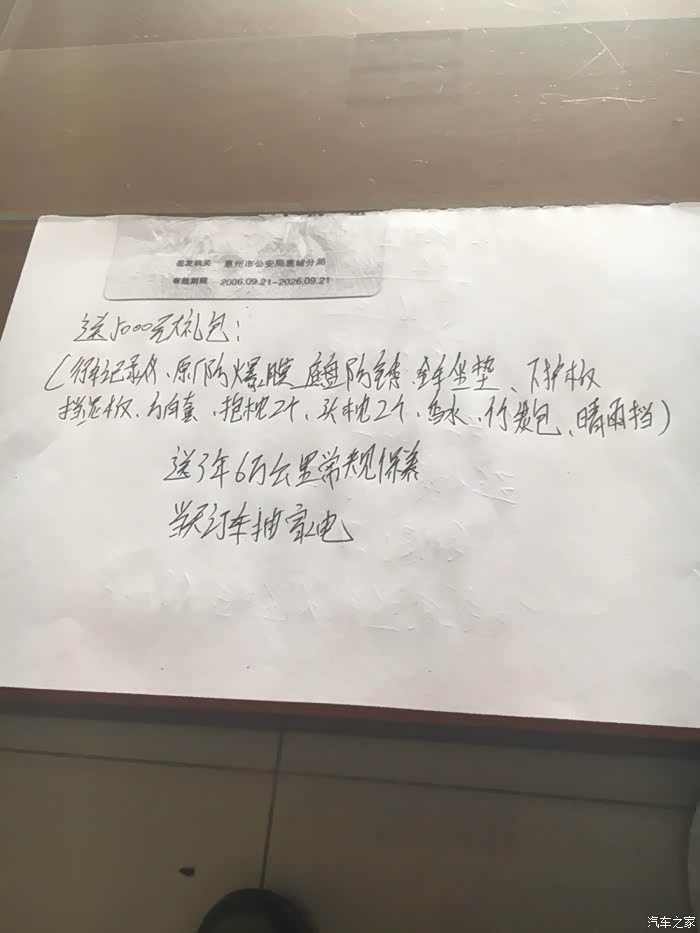 签发机关 惠州市公安局惠城分局
有效期限 2006.09.21-2026.09.21
送5000元大礼包:
(行车记录仪、原厂防爆膜 底盘防锈 全车坐垫、下护板
挡泥板、方向套、抱枕2个、头枕2个、香水、竹炭包、晴雨挡)
送3年6万公里常规保养
当天订车抽家电
汽车之家